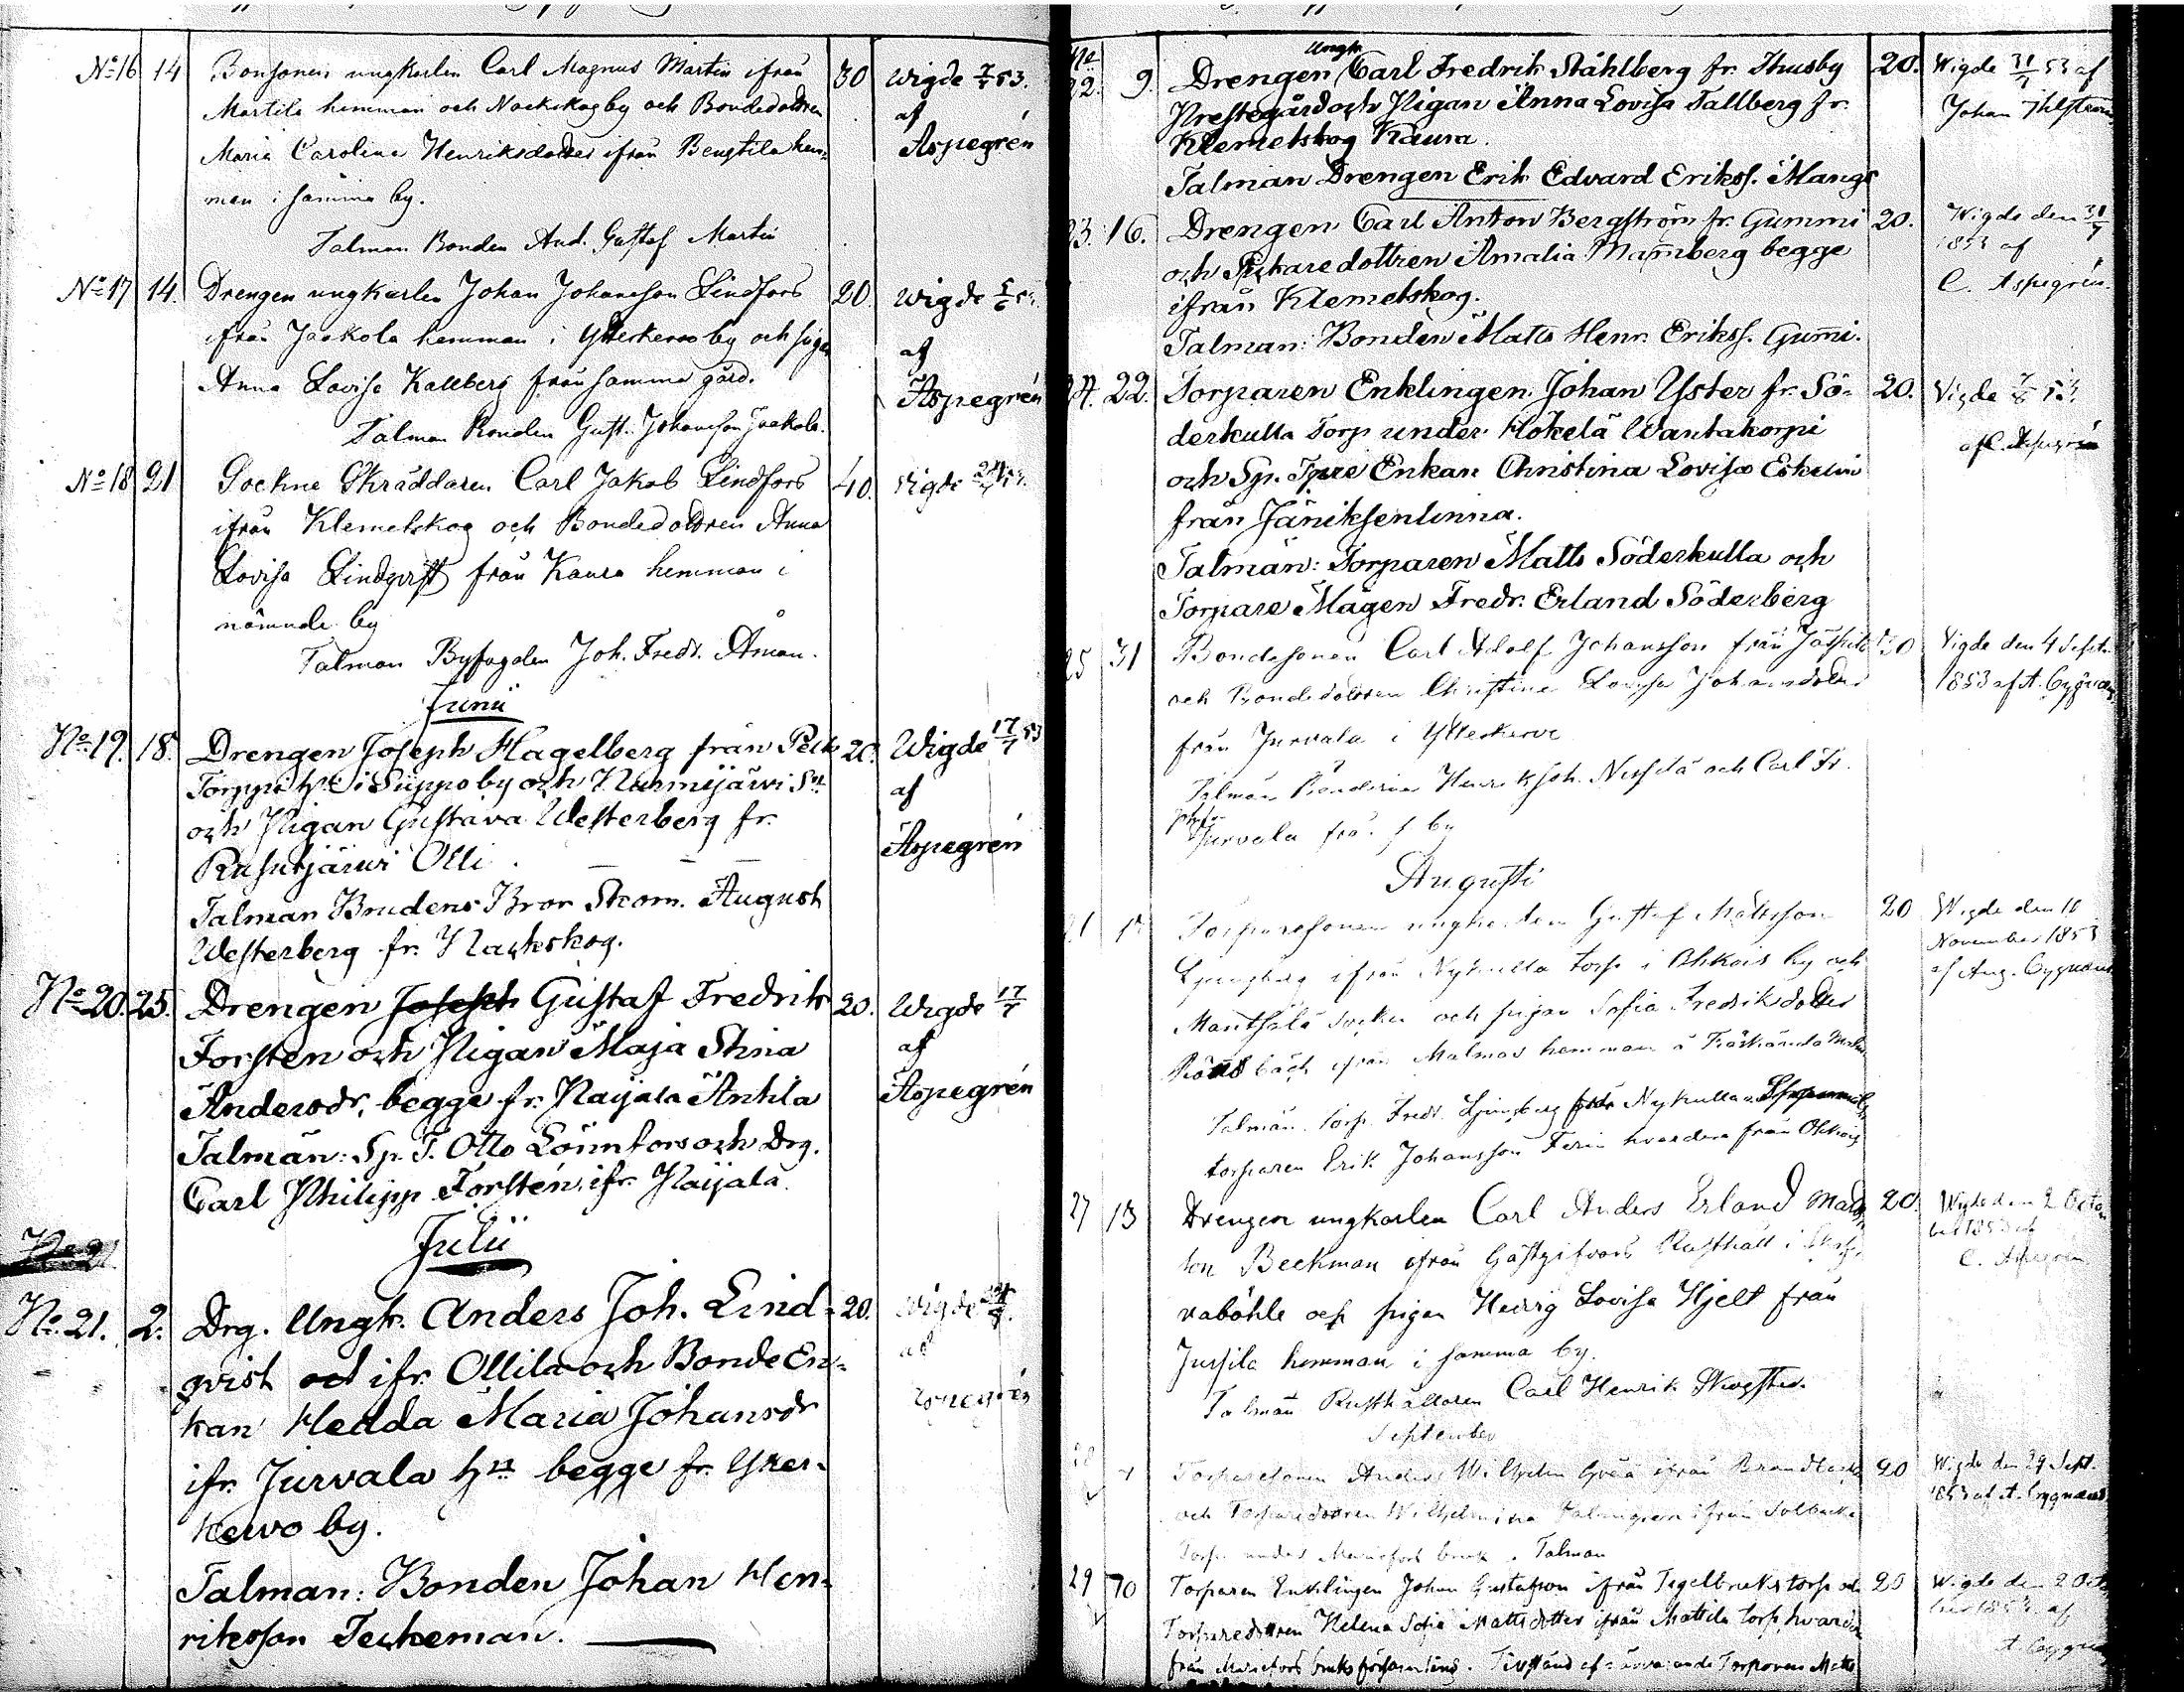 No 16 14 Bonsonen ungkarlen Carl Magnus Martin ifrån 30 Wigde 7/5 53.
Martila hemman och Nackskog by och Bondedottren af
Maria Carolina Henriksdotter ifrån Bengtila hem- Aspegrén
man i samma by.
Talman Bonden And. Gustaf Martin
No 17 14. Drengen ungkarlen Johan Johansson Lindfors 20. Wigde 5/6 53
ifrån Jaakola hemman i Ytterkervo by och pigan af
Anna Lovisa Kallberg från samma gård. Aspegrén
Talman Bonden Gust. Johansson Jaakola.
No 18 21 Sockne Skräddaren Carl Jakob Lindfors 40. Vigde
ifrån Klemetskog och Bondedottren Anna
Lovisa Lindqvist från Kaura hemman i
nämnde by
Talman Byfogden Joh. Fredr. Åman.
Junii
No 19. 18. Drengen Joseph Hagelberg från 20. Wigde 17/7 53
Torppi hn i Siippo by och Nurmijärvi Sn af
och Pigan Gustava Westerberg fr. Aspegrén
Rusutjärwi Olli.
Talman Brudens Bror Skom. August
Westerberg fr. Nackskog.
No 20. 25. Drengen Joseph Gustaf Fredrik 20. Wigde 17/7
Forsten och Pigan Maja Stina af
Andersdr, begge fr. Paijala Anttila Aspegrén
Talmän: Sp. T. Otto Lönnfors och Drg.
Carl Philipp Forstén ifr. Paijala.
Julii
No 21
No. 21. 2. Drg. Ungk. Anders Joh. Lind- 20. Wigde
qvist och ifr. Ollila och Bonde En- af
kan Hedda Maria Johansdr Aspegrén
ifr. Jurvala hn begge fr. Ytter-
kervo by.
Talman: Bonden Johan Hen-
riksson Teckeman.
No
22. 9. Drengen Ungk. Carl Fredrik Ståhlberg fr. Thusby 20. Wigde 31/7 53 af
Prestegård och Pigan Anna Lovisa Tallberg fr. Johan
Klemetskog Kaura.
Talman Drengen Erik Edvard Erikss. Mangs
23. 16. Drengen Carl Anton Bergström fr. Gummi 20. Wigde den 31/7
och Dottren Amalia Mamberg begge 1853 af
ifrån Klemetskog. C. Aspegrén.
Talman: Bonden Matts Henr. Erikss. Gummi.
24. 22. Torparen Enklingen Johan Yster fr. Sö- 20. Vigde 7/8 53
derkulla Torp under Hökelä Wantakorpi af C. Aspegrén
och Sp. Tpre Enkan Christina Lovisa Eskelin
från Jäniksenlinna.
Talmän: Torparen Matts Söderkulla och
Torpare Mågen Fredr. Erland Söderberg
25 31 Bondesonen Carl Adolf Johansson från 20 Vigde den 4 Sept.
och Bondedottren Christina Lovisa Johansdotter 1853 af A. Cygnæus
från Jurvala i Ytterkervo
Talmän Bönderne Henrik Joh. Nissilä och Carl Fr.
Jurvala från s. by
Augusti
Torparesonen ungkarlen Gustaf Mattsson 20 Wigde den 10
Ljungberg ifrån Nykulla torp i Ohkois by och November 1853
Mäntsälä socken och pigan Sofia Fredriksdotter af Aug. Cygnæus
ifrån Malmas hemman å Träskända
Talmän torp. Fredr. Ljungberg från Nykulla
torparen Erik Johansson hvardera från Ohkois
27 13 Drengen ungkarlen Carl Anders Erland Mads- 20. Wigde den 2 Octo-
son Beckman ifrån Gästgifvars Rusthåll i ber 1853 af
vaböhle och pigan Hedvig Lovisa Hjelt från C. Aspegrén
Jussila hemman i samma by.
Talman Rusthållaren Carl Henrik Skogster.
September
Torparesonen Anders Wilhelm ifrån 20 Wigde den 29 Sept.
och Torparedottren Wilhelmina Palmgren ifrån Solbacka 1853 af A. Cygnæus
Torp under Mariefors bruk. Talman
29 10 Torparen Enklingen Johan Gustafsson ifrån Tegelbruks torp och 20 Wigde den 2 Octo-
Torparedottren Helena Sofia Mattsdotter ifrån Mattila torp, hvardera ber 1853 af
från Mariefors bruks A. Cygnæus